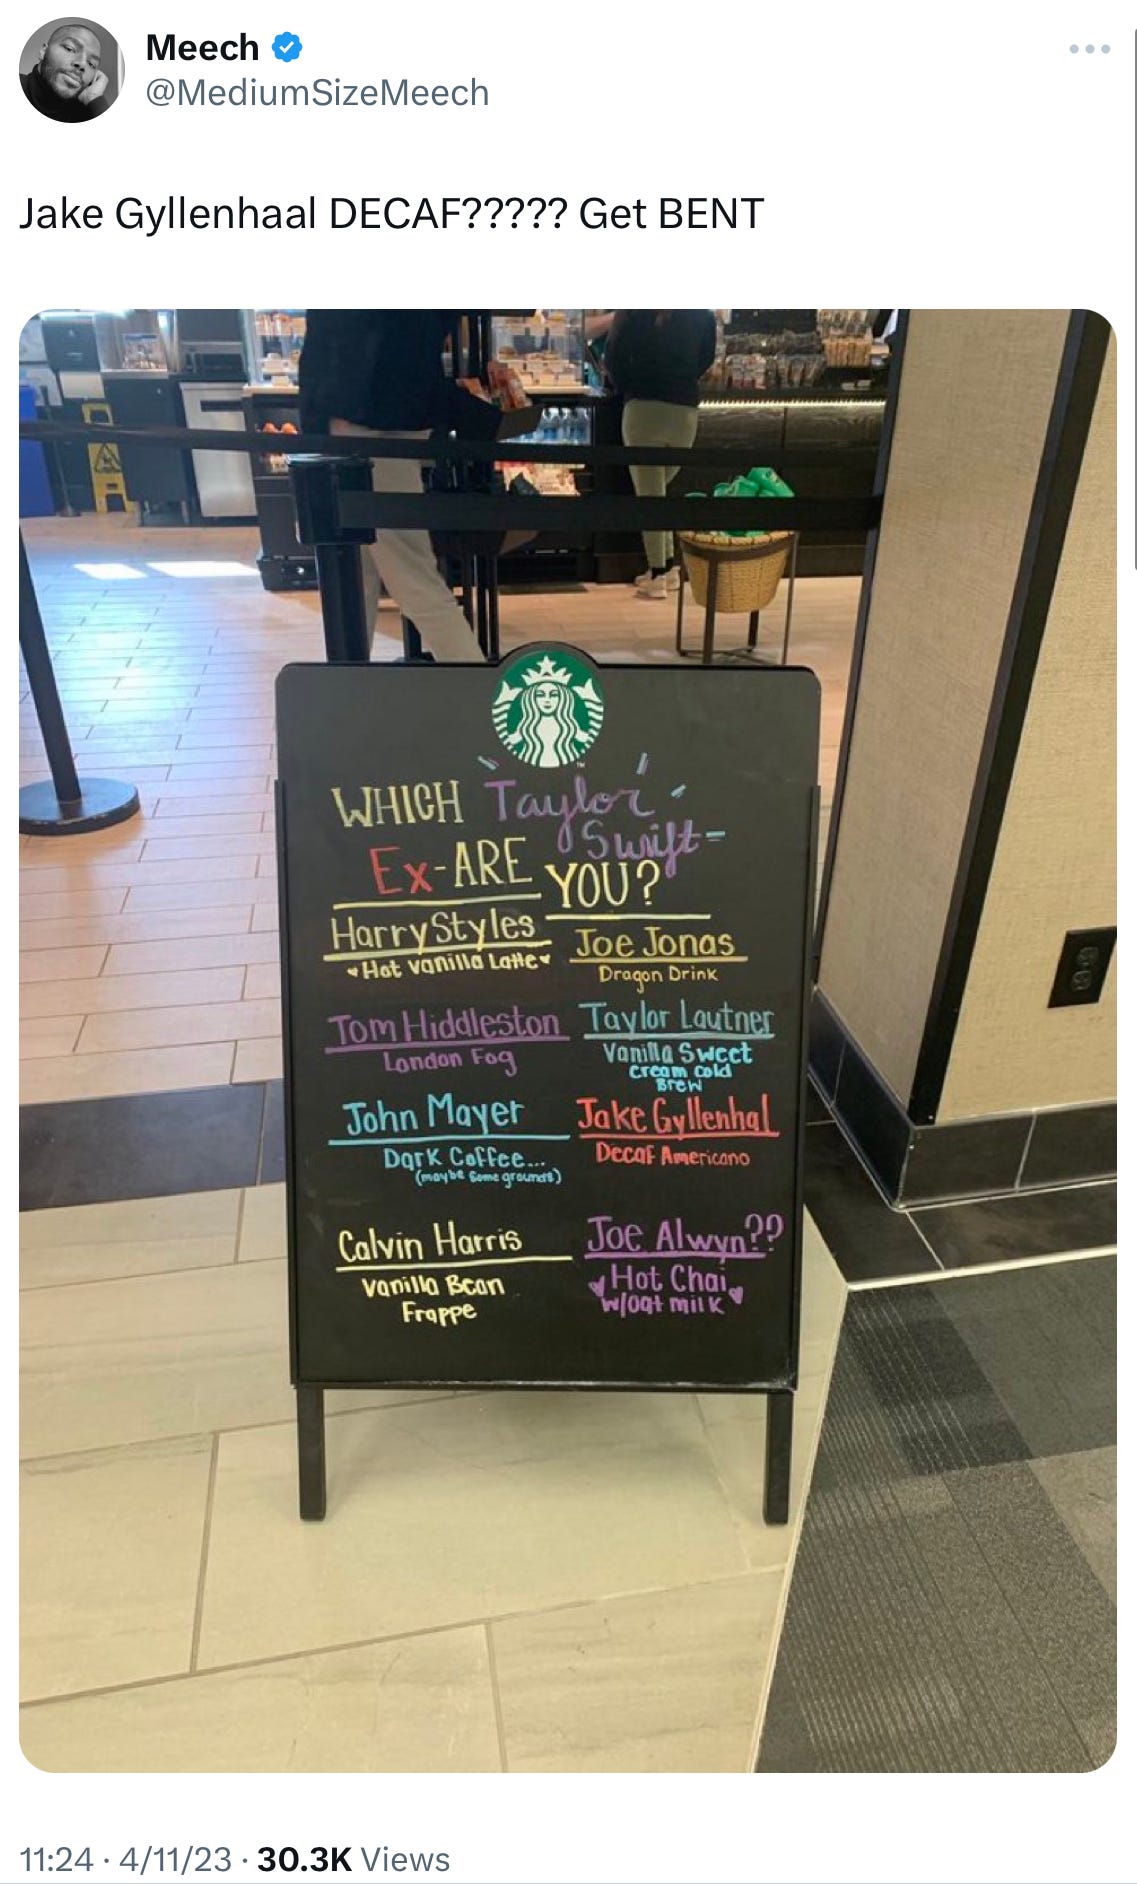 Meech
@MediumSizeMeech
Jake Gyllenhaal DECAF????? Get BENT
WHICH Taylor
Swift
Ex-ARE YOU?
Harry Styles
Hot Vanilla Latte
Joe Jonas
Dragon Drink
Tom Hiddleston
London Fog
Taylor Lautner
Vanilla Sweet
Cream Cold
Brew
John Mayer
Dark Coffee...
(maybe some grounds)
Jake Gyllenhal
Decaf Americano
Calvin Harris
Vanilla Bean
Frappe
Joe Alwyn??
Hot Chai
w/oat milk
11:24 · 4/11/23 · 30.3K Views